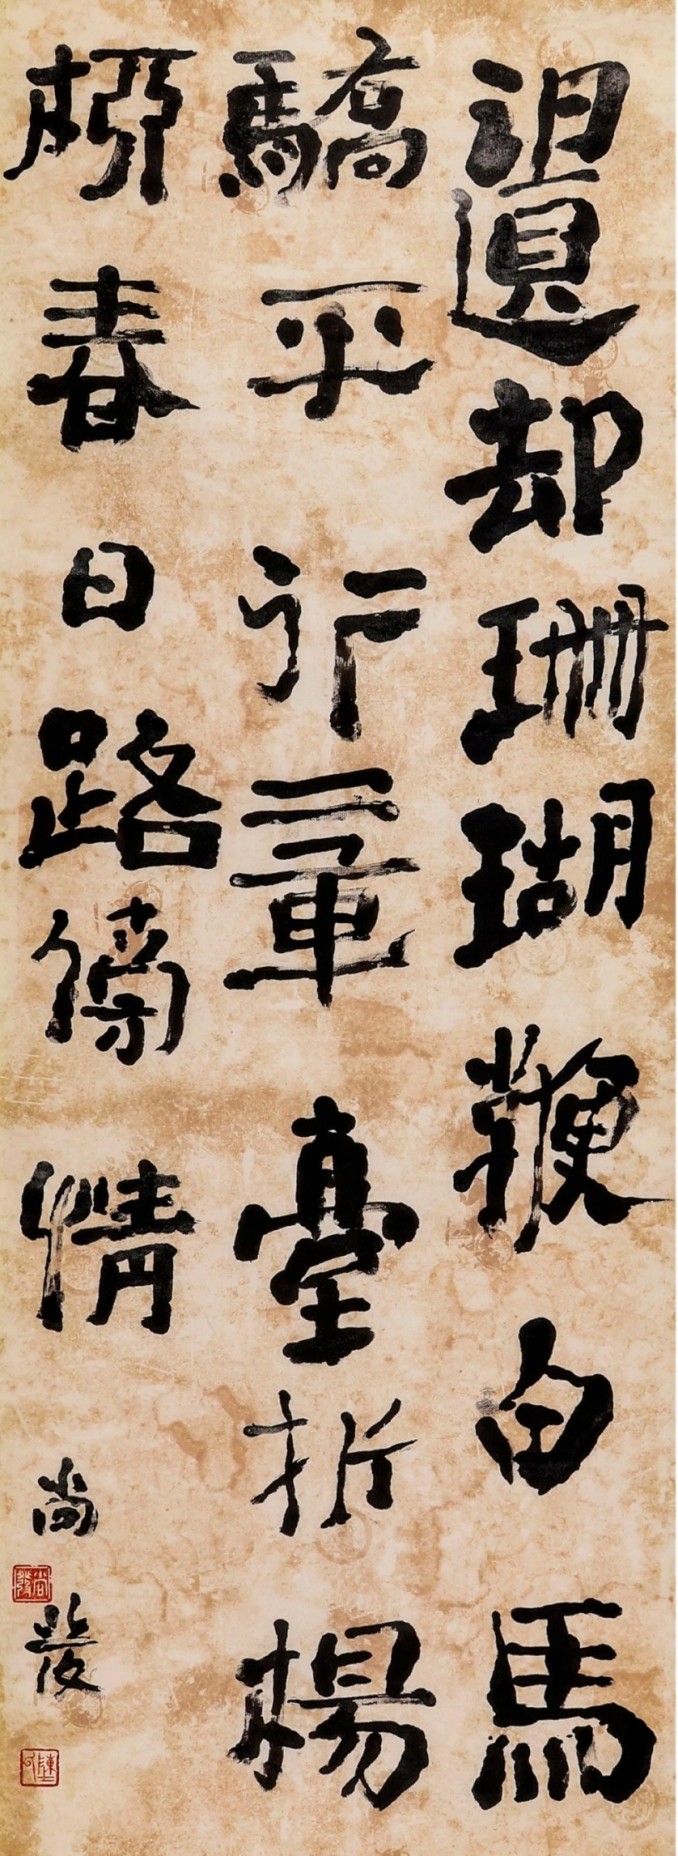 遺却珊瑚鞭白馬
驕不行章臺折楊
柳春日路傍情
尚發